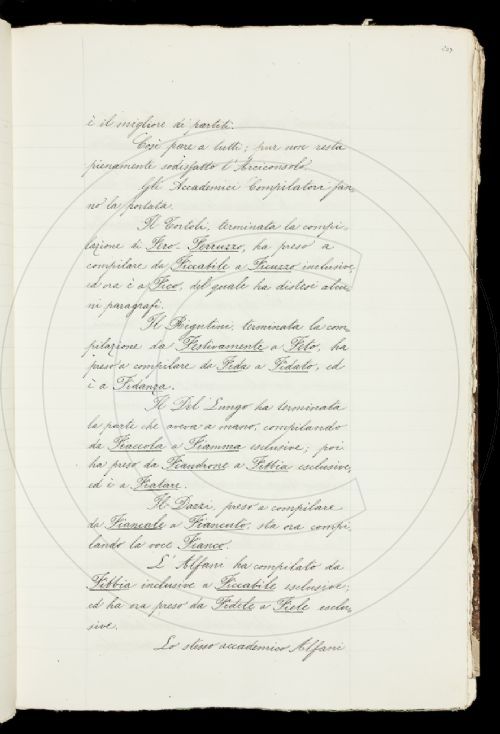 207
è il migliore dei partiti.
Così pare a tutti; pur non resta
pienamente sodisfatto l'Arciconsolo.
Gli Accademici Compilatori fan-
no la portata.
Il Tortoli, terminata la compi-
lazione di Fero - Ferruzzo, ha preso a
compilare da Ficcabile a Ficuzzo inclusive,
ed ora è a Fico, del quale ha distesi alcu-
ni paragrafi.
Il Rigutini, terminata la com-
pilazione da Festivamente a Feto, ha
preso a compilare da Fida a Fidato, ed
è a Fidanza.
Il Del Lungo ha terminata
la parte che aveva a mano, compilando
da Fiaccola a Fiamma esclusive; poi
ha preso da Fiandrone a Fibbia esclusive,
ed è a Fiatare.
Il Dazzi, preso a compilare
da Fiancale a Fiancuto, sta ora compi-
lando la voce Fianco.
L'Alfani ha compilato da
Fibbia inclusive a Ficcabile esclusive;
ed ha ora preso da Fidele a Fiele esclu-
sive.
Lo stesso accademico Alfani